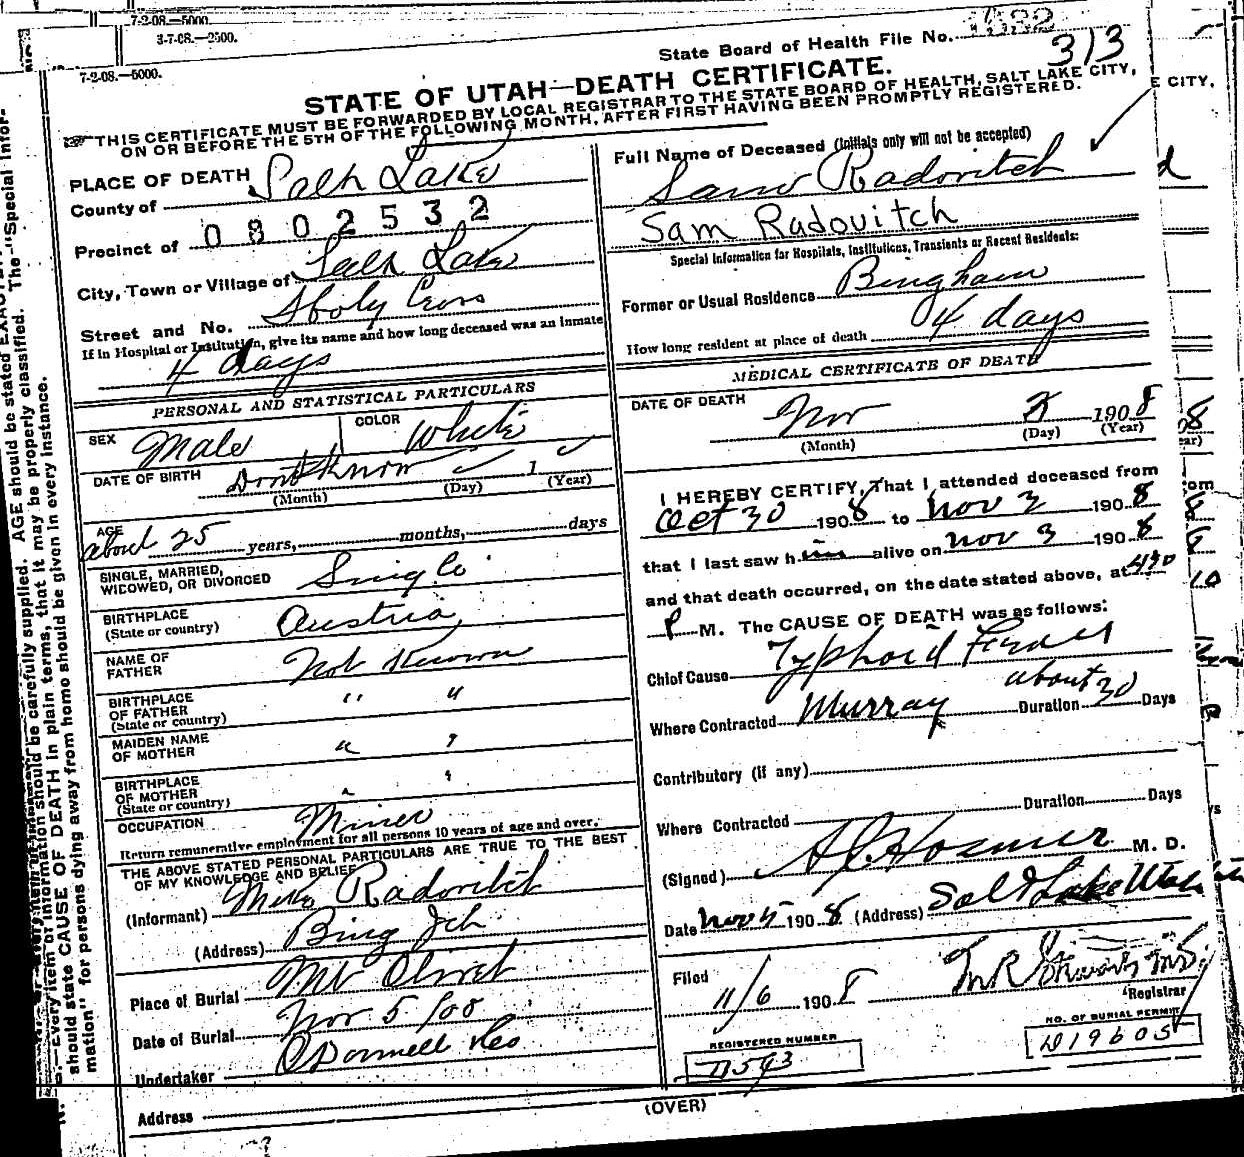 7-2-08.—5000.
3-7-08.—2500.
7-2-08.—5000.
State Board of Health File No.
313
STATE OF UTAH—DEATH CERTIFICATE.
THIS CERTIFICATE MUST BE FORWARDED BY LOCAL REGISTRAR TO THE STATE BOARD OF HEALTH, SALT LAKE CITY,
ON OR BEFORE THE 5TH OF THE FOLLOWING MONTH, AFTER FIRST HAVING BEEN PROMPTLY REGISTERED.
E CITY,
PLACE OF DEATH
County of Salt Lake
Precinct of 0802532
City, Town or Village of Salt Lake
Street and No. Holy Cross
If in Hospital or Institution, give its name and how long deceased was an inmate
4 days
PERSONAL AND STATISTICAL PARTICULARS
SEX Male COLOR White
DATE OF BIRTH Dont Know 1
(Month) (Day) (Year)
AGE about 25 years, months, days
SINGLE, MARRIED, WIDOWED, OR DIVORCED Single
BIRTHPLACE (State or country) Austria
NAME OF FATHER Not Known
BIRTHPLACE OF FATHER (State or country) " "
MAIDEN NAME OF MOTHER " "
BIRTHPLACE OF MOTHER (State or country) " "
OCCUPATION Miner
Return remunerative employment for all persons 10 years of age and over.
THE ABOVE STATED PERSONAL PARTICULARS ARE TRUE TO THE BEST
OF MY KNOWLEDGE AND BELIEF
(Informant) Mike Radovitch
(Address) Bing
Place of Burial Mt Olivet
Date of Burial Nov 5/08
Undertaker O'Donnell &Co
Address
Full Name of Deceased (Initials only will not be accepted)
Sam Radovitch
Sam Radovitch
Special Information for Hospitals, Institutions, Transients or Recent Residents:
Former or Usual Residence Bingham
How long resident at place of death 4 days
MEDICAL CERTIFICATE OF DEATH
DATE OF DEATH Nov 3 1908
(Month) (Day) (Year)
I HEREBY CERTIFY, That I attended deceased from
Oct 30 1908 to Nov 3 1908
that I last saw him alive on Nov 3 1908
and that death occurred, on the date stated above, at 430
P M. The CAUSE OF DEATH was as follows:
Chief Cause Typhoid Fever
about 30
Where Contracted Murray Duration Days
Contributory (if any)
Duration Days
Where Contracted
(Signed) Hosmer M. D.
Date Nov 5 1908 (Address) Salt Lake Utah
Filed 11/6 1908 M R Stewart M.D.
Registrar
REGISTERED NUMBER
D543
NO. OF BURIAL PERMIT
D19605
(OVER)
N. B.—Every item of information should be carefully supplied. AGE should be stated EXACTLY.
should state CAUSE OF DEATH in plain terms, that it may be properly classified. The "Special Infor-
mation" for persons dying away from home should be given in every instance.